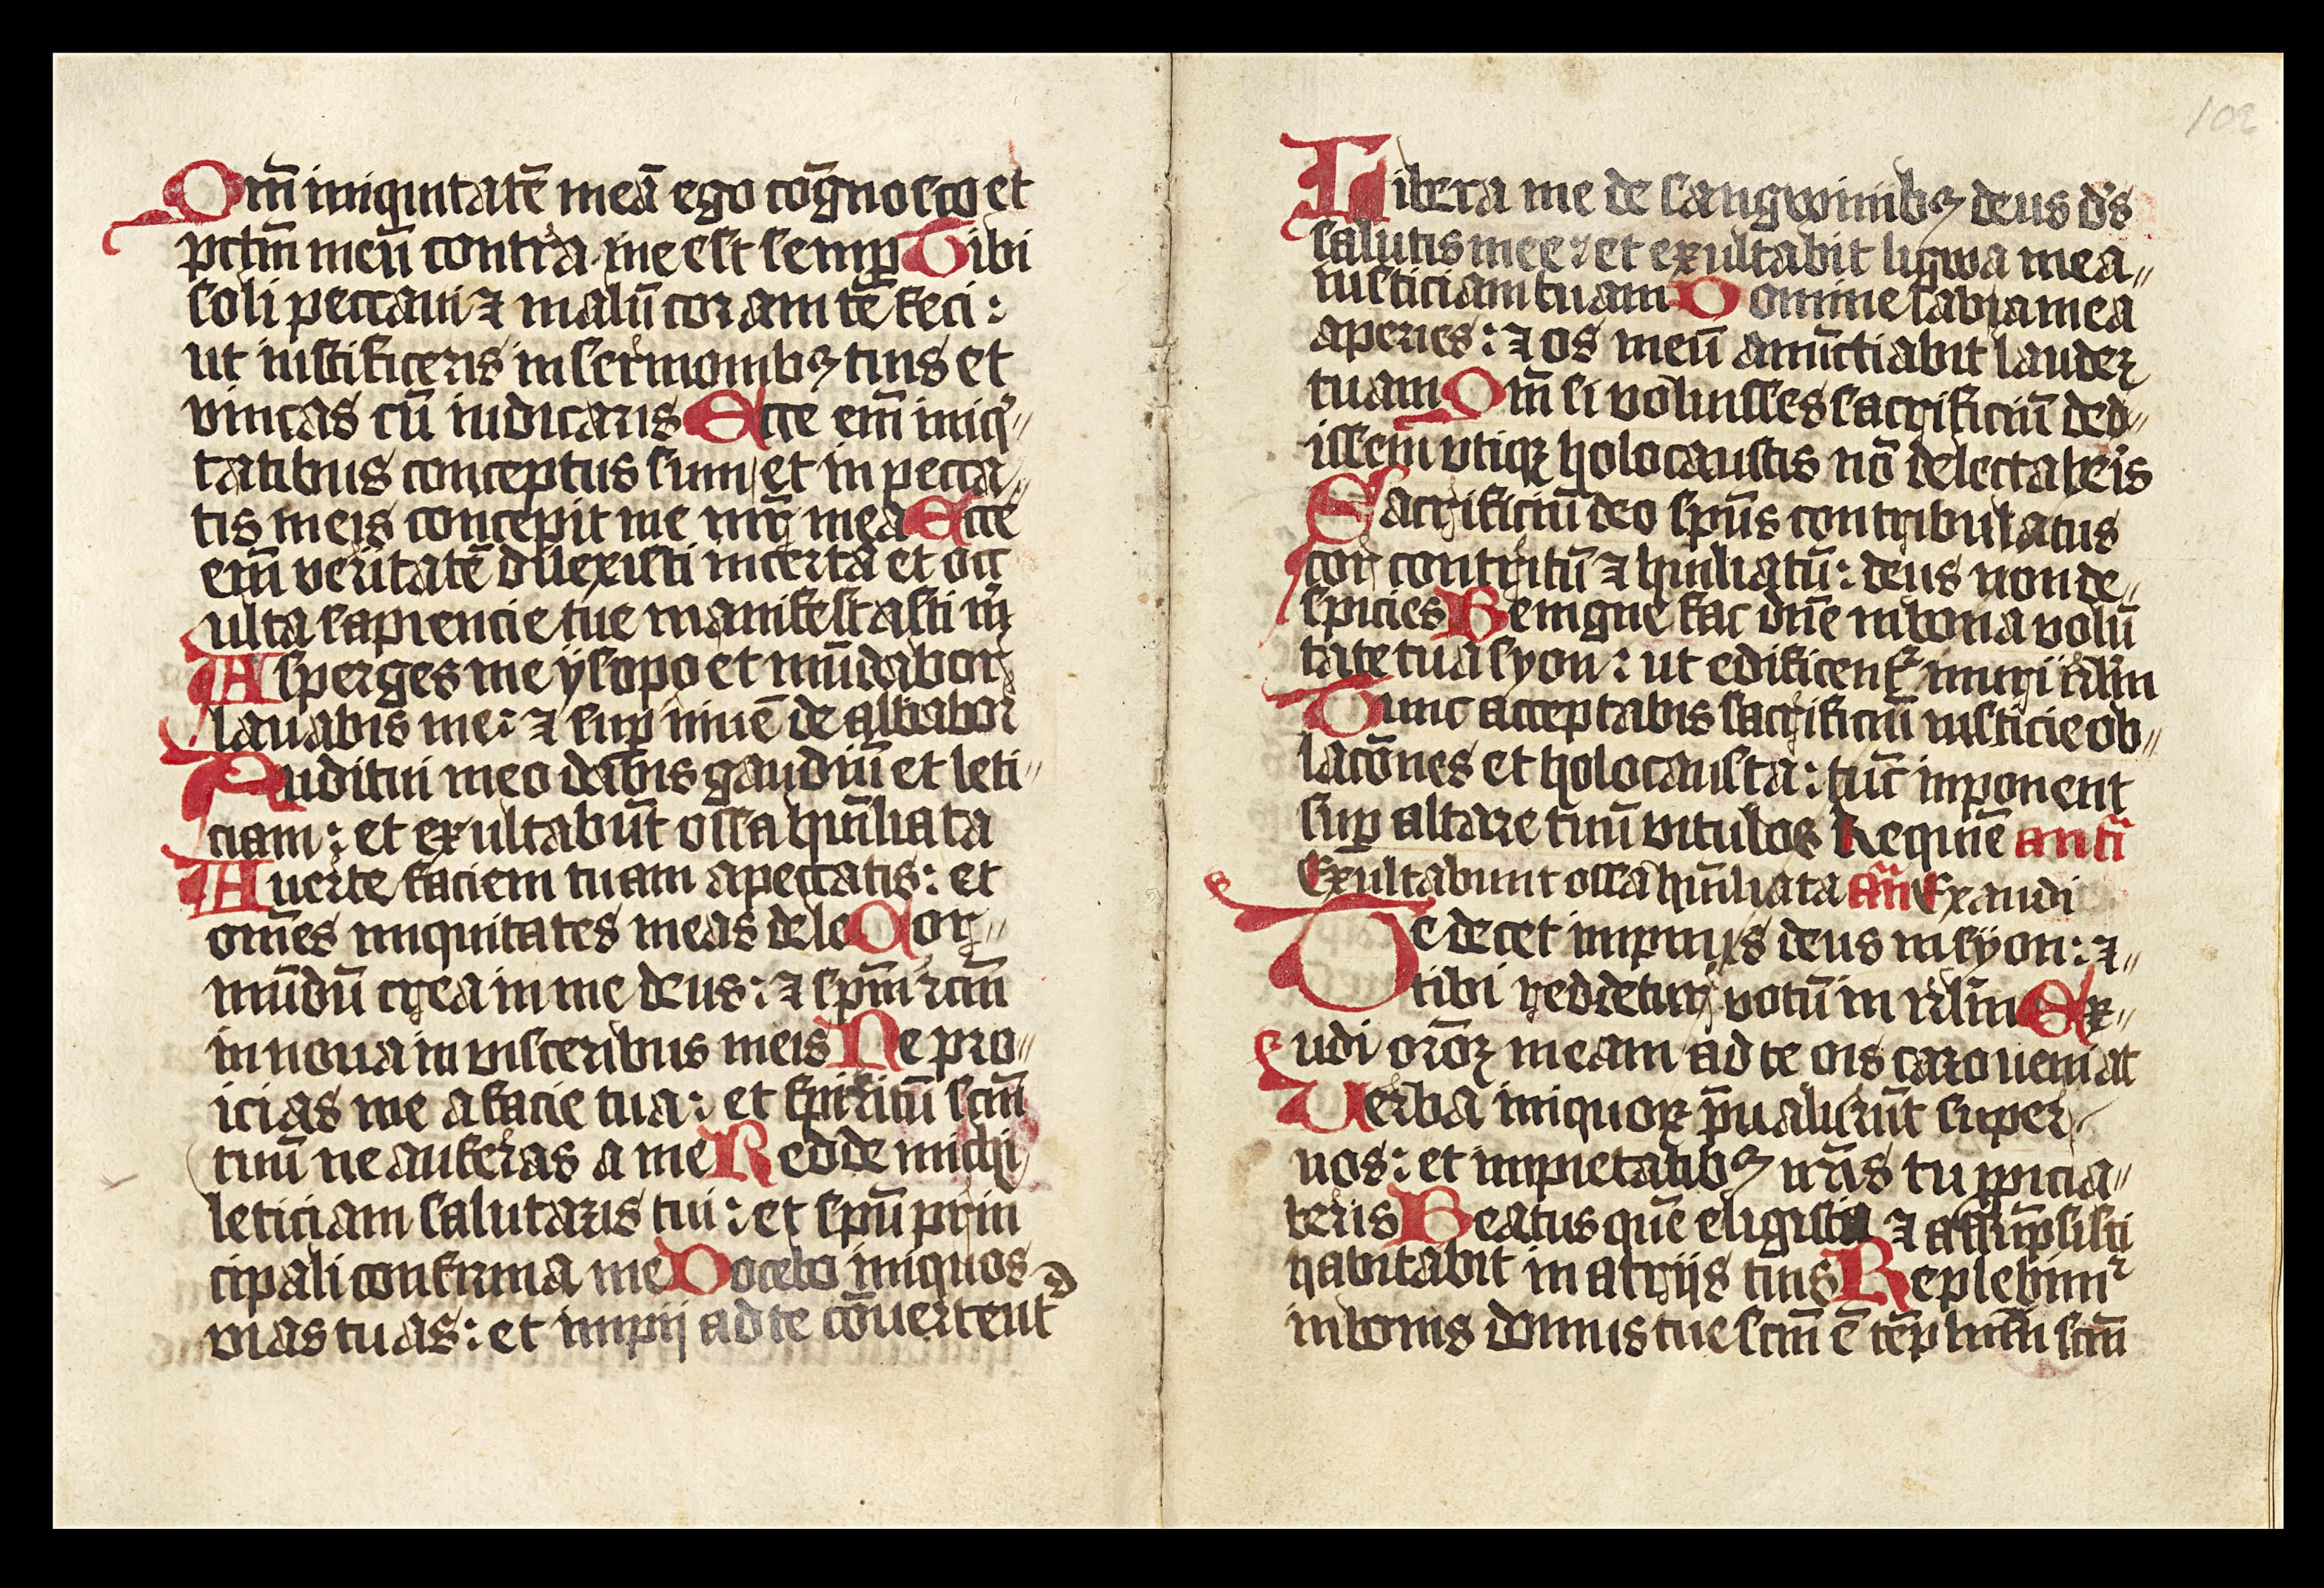 Qm̄ iniquitatē meā ego cōgnosco et
pctm̄ meū contra me est semꝑ Tibi
soli peccaui ⁊ malū coram te feci :
ut iustificeris in sermonibꝫ tuis et
vincas cū iudicaris Ecce em̄ iniq͛〃
tatibus conceptus sum et in pecca〃
tis meis concepit me mr̄ mea Ecce
em̄ veritatē dilexisti incerta et occ
ulta sapiencie tue manifestasti m̄
Asperges me ysopo et mūdabor
lauabis me : ⁊ suꝑ niuē de albabor
Auditui meo dabis gaudiū et leti〃
ciam : et exultabūt ossa hūiliata
Auerte faciem tuam a peccatis : et
om̄es iniquitates meas dele Cor〃
mūdū crea in me deus : ⁊ spm̄ rcm̄
innoua in visceribus meis Ne pro〃
icias me a facie tua : et spiritū scm̄
tuū ne auferas a me Redde michi
leticiam salutaris tui : et spū prin
cipali confirma me Docebo iniquos
vias tuas : et impij ad te cōuertent᷒
102
Libera me de sangwinibꝫ deus ds̄
salutis mee : et exultabit ligwa mea〃
iusticiam tuam Domine labia mea
aperies : ⁊ os meū anūctiabit laudeꝫ
tuam Qm̄ si voluisses sacrificiū ded〃
issem vtiqꝫ holocaustis nō delectaberis
Sacrificiū deo spūs contribulatus
cor contritū ⁊ hūiliatū : deus non de〃
spicies Benigne fac dn̄e in bona volū
tate tua syon : ut edificent᷑ muri irl̄m
Tunc acceptabis sacrificiū iusticie ob〃
lacōnes et holocausta : tūc imponent
suꝑ altare tuū vitulos Requiē anti
Exultabunt ossa hūiliata an̄ Exaudi
Te decet impnus deus in syon : ⁊〃
tibi reddetur votū in irl̄m Ex〃
udi orōꝫ meam ad te ois caro ueniat
Verba iniquoꝝ p̄ualuerūt super
nos : et impietatibꝫ nr̄is tu ꝓpicia〃
beris Beatus quē eligisti ⁊ assūpsisti
habitabit in atrijs tuis Replebimr᷒
in bonis domus tue scm̄ ē tēplum tuū